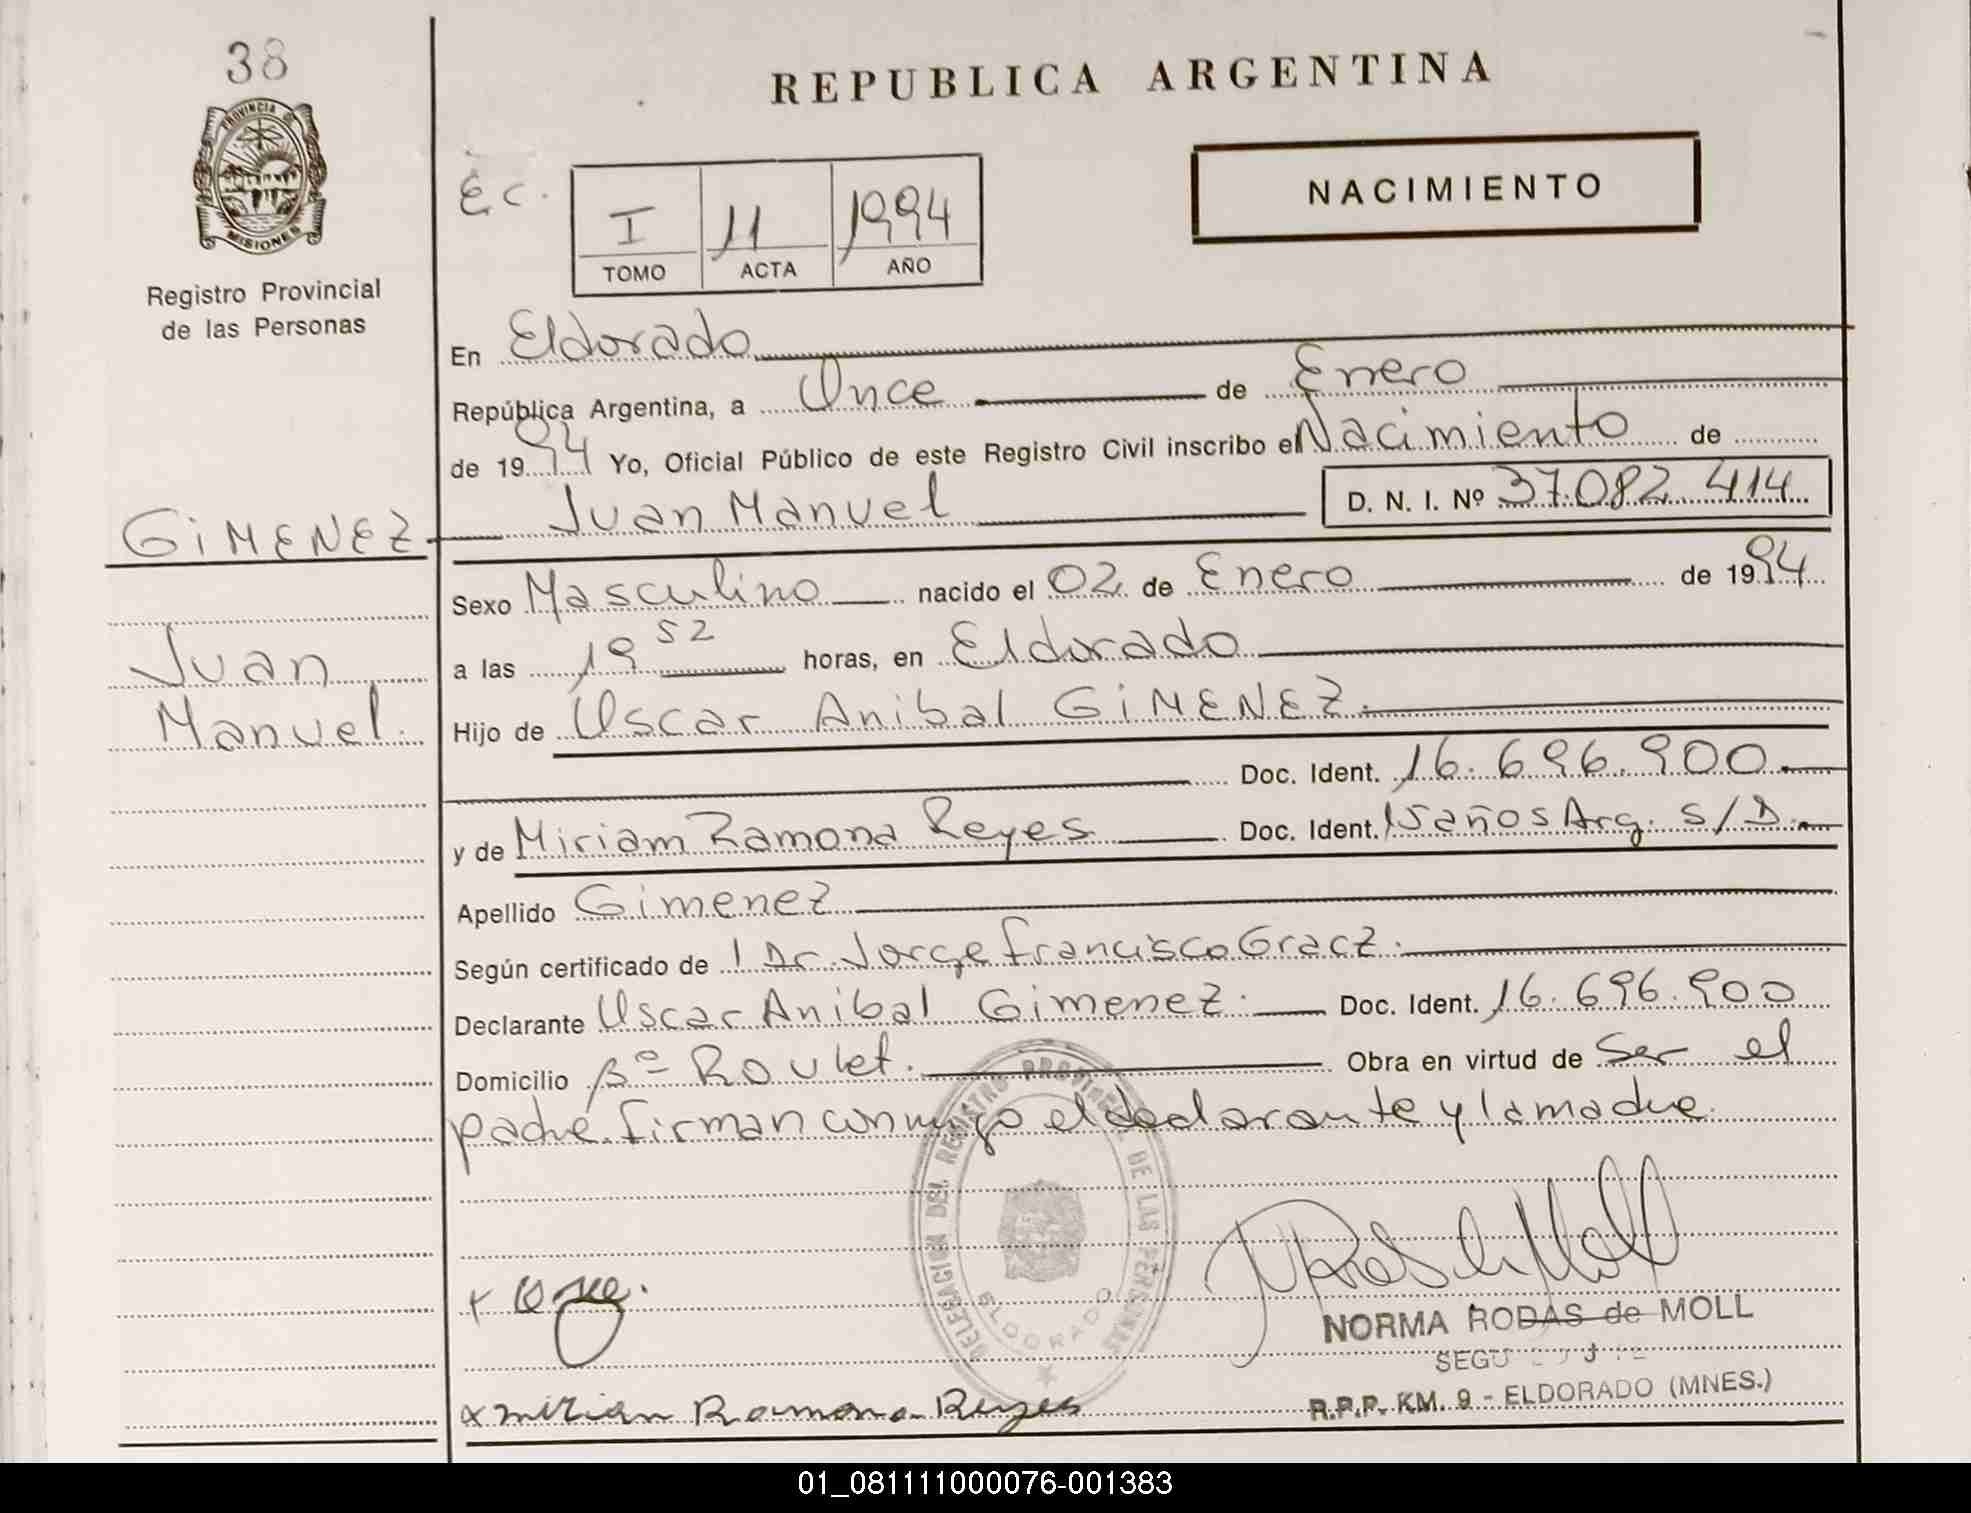 38
PROVINCIA DE
MISIONES
Registro Provincial
de las Personas
REPUBLICA ARGENTINA
Ec.
I 11 1994
TOMO ACTA AÑO
NACIMIENTO
En Eldorado
República Argentina, a Once de Enero
de 1994 Yo, Oficial Público de este Registro Civil inscribo el Nacimiento de
GIMENEZ Juan Manuel D. N. I. Nº 37.082.414
Sexo Masculino nacido el 02 de Enero de 1994
Juan a las 19 52 horas, en Eldorado
Manuel. Hijo de Oscar Anibal GIMENEZ.
Doc. Ident. 16.696.900
y de Miriam Ramona Reyes Doc. Ident. 15 años Arg. S/D.
Apellido Gimenez
Según certificado de 1 Dr. Jorge Francisco Gracz.
Declarante Oscar Anibal Gimenez. Doc. Ident. 16.696.900
Domicilio Bº Roulet. Obra en virtud de Ser el
padre. firman conmigo el declarante y la madre.
DELEGACION DEL REGISTRO PROVINCIAL DE LAS PERSONAS
ELDORADO
NRodas de Moll
NORMA RODAS de MOLL
R.P.P. KM. 9 - ELDORADO (MNES.)
x Mirian Ramona Reyes
01_081111000076-001383